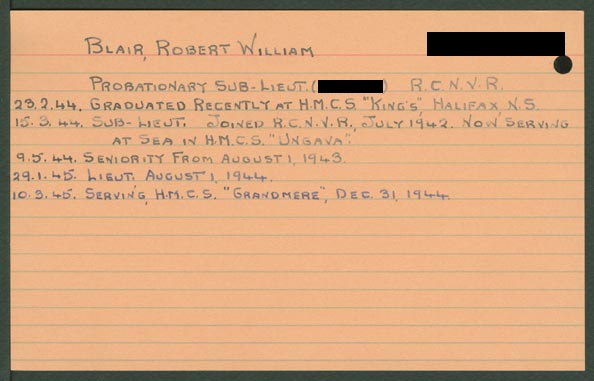 BLAIR, ROBERT WILLIAM
PROBATIONARY SUB-LIEUT. ( ) R.C.N.V.R.
23.2.44. GRADUATED RECENTLY AT H.M.C.S. "KING'S", HALIFAX, N.S.
15.3.44. SUB-LIEUT. JOINED R.C.N.V.R., JULY 1942. NOW SERVING
AT SEA IN H.M.C.S. "UNGAVA".
9.5.44. SENIORITY FROM AUGUST 1, 1943.
29.1.45. LIEUT. AUGUST 1, 1944.
10.3.45. SERVING, H.M.C.S. "GRANDMERE", DEC. 31, 1944.